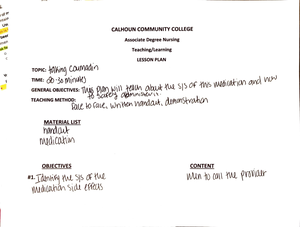 CALHOUN COMMUNITY COLLEGE
Associate Degree Nursing
Teaching/Learning
LESSON PLAN
TOPIC: taking Coumadin
TIME: 20-30 minutes
GENERAL OBJECTIVES: This plan will teach about the s/s of this medication and how
to safely administer it.
TEACHING METHOD: Face to face, written handout, demonstration
MATERIAL LIST
handout
medication
OBJECTIVES CONTENT
#1. Identify the s/s of the When to call the provider
medication side effects